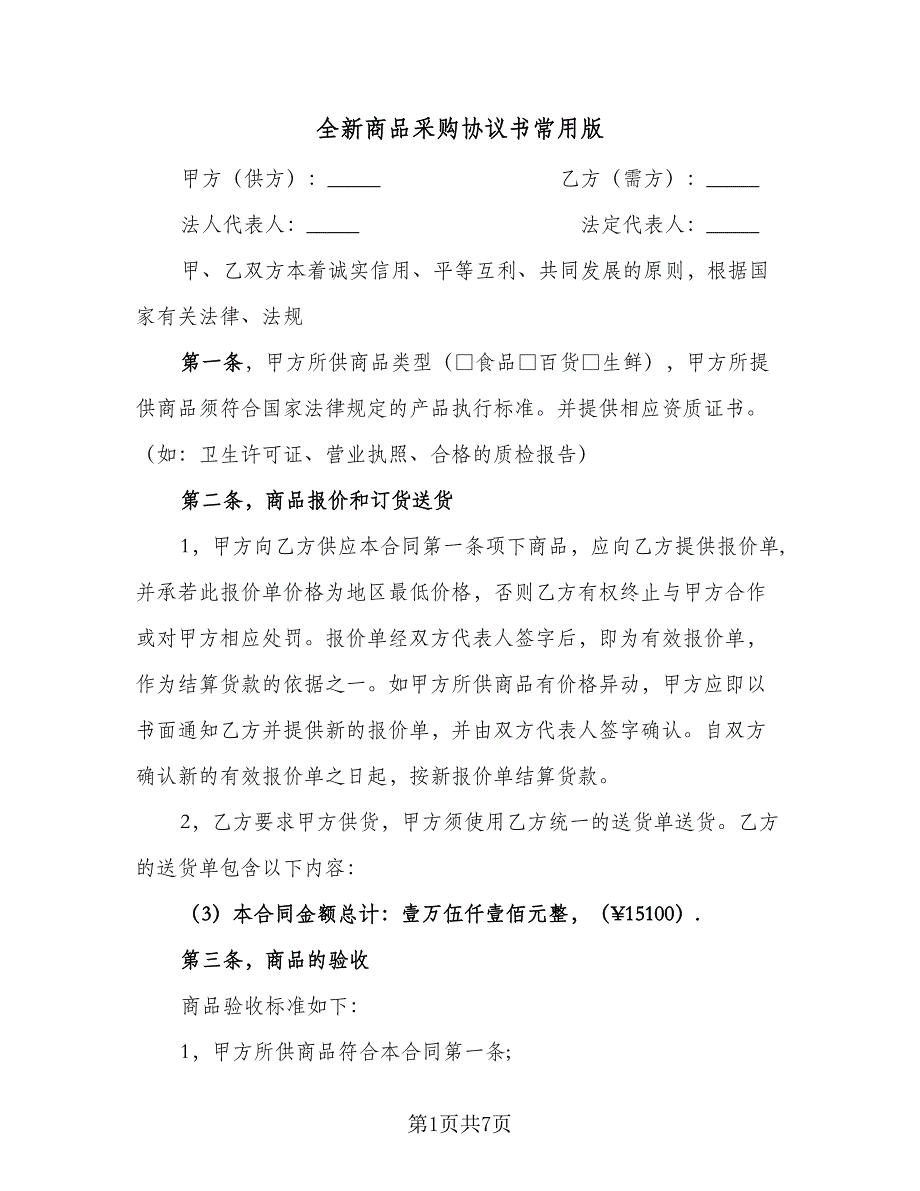 全新商品采购协议书常用版
甲方（供方）：_____ 乙方（需方）：_____
法人代表人：_____ 法定代表人：_____
甲、乙双方本着诚实信用、平等互利、共同发展的原则，根据国
家有关法律、法规
第一条，甲方所供商品类型（□食品□百货□生鲜），甲方所提
供商品须符合国家法律规定的产品执行标准。并提供相应资质证书。
（如：卫生许可证、营业执照、合格的质检报告）
第二条，商品报价和订货送货
1，甲方向乙方供应本合同第一条项下商品，应向乙方提供报价单，
并承若此报价单价格为地区最低价格，否则乙方有权终止与甲方合作
或对甲方相应处罚。报价单经双方代表人签字后，即为有效报价单，
作为结算货款的依据之一。如甲方所供商品有价格异动，甲方应即以
书面通知乙方并提供新的报价单，并由双方代表人签字确认。自双方
确认新的有效报价单之日起，按新报价单结算货款。
2，乙方要求甲方供货，甲方须使用乙方统一的送货单送货。乙方
的送货单包含以下内容：
（3）本合同金额总计：壹万伍仟壹佰元整，（¥15100）.
第三条，商品的验收
商品验收标准如下：
1，甲方所供商品符合本合同第一条;
第1页共7页